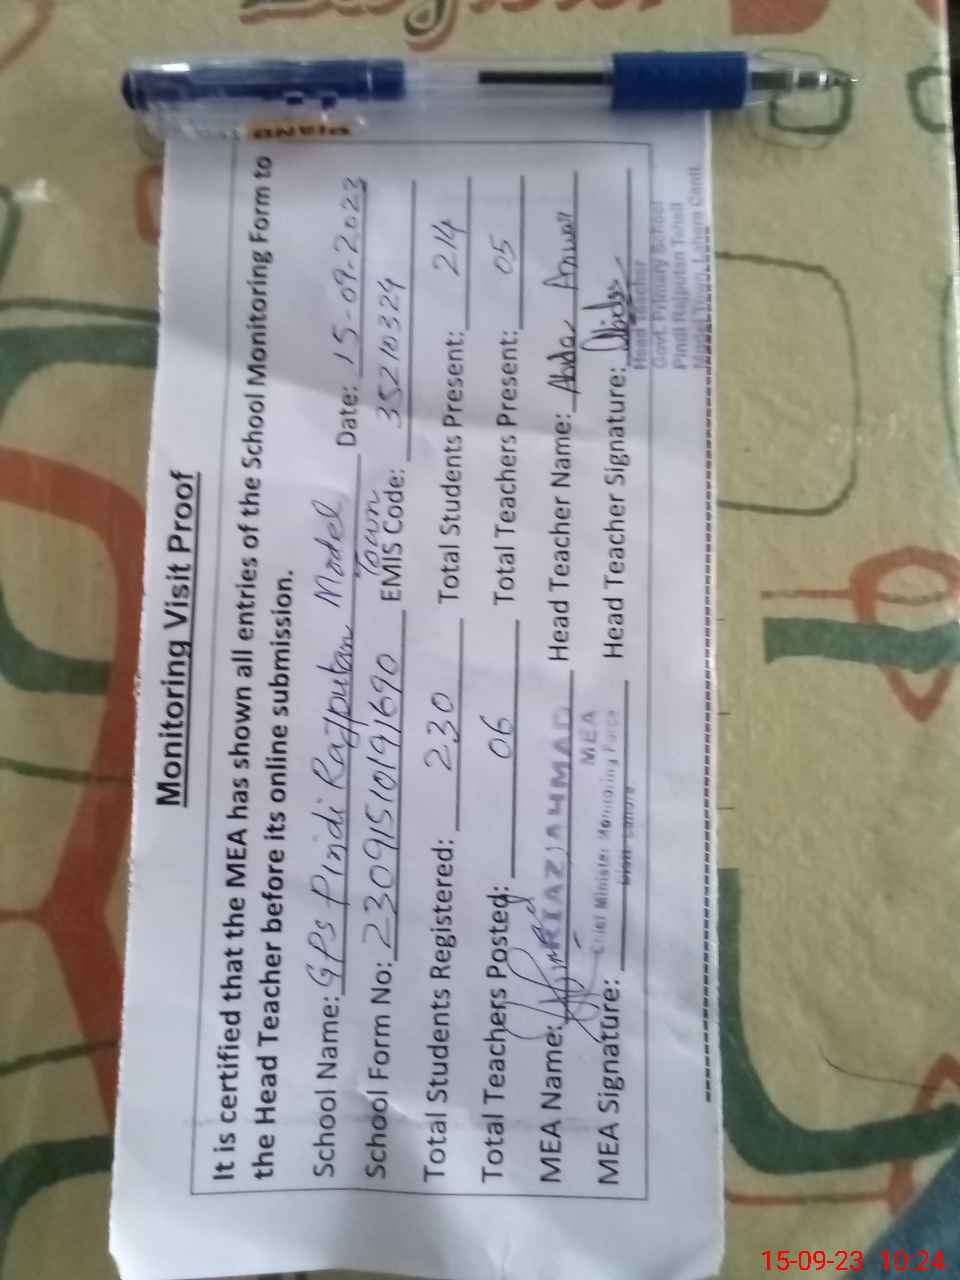 PIANO
Monitoring Visit Proof
It is certified that the MEA has shown all entries of the School Monitoring Form to
the Head Teacher before its online submission.
School Name: GPS Pindi Rajputan Model Town Date: 15-09-2023
School Form No: 23091510191690 EMIS Code: 35210324
Total Students Registered: 230 Total Students Present: 214
Total Teachers Posted: 06 Total Teachers Present: 05
MEA Name: RIAZ AHMAD Head Teacher Name: Abda
MEA
Chief Minister Monitoring Force
Distt. Lahore
MEA Signature: Head Teacher Signature:
Head Teacher
Govt. Primary School
Pindi Rajputan Tehsil
Model Town, Lahore Cantt.
15-09-23 10:24